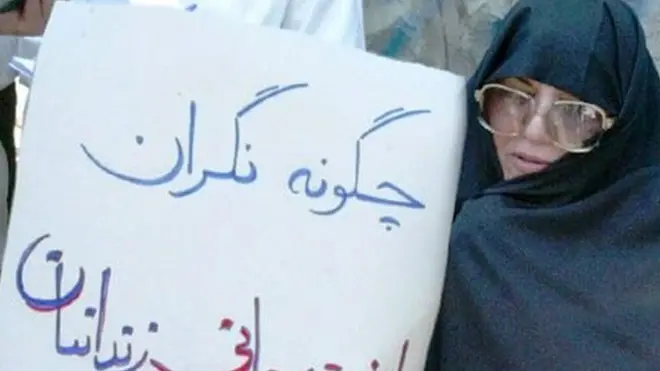 چگونه نگران
جانی زندانیان